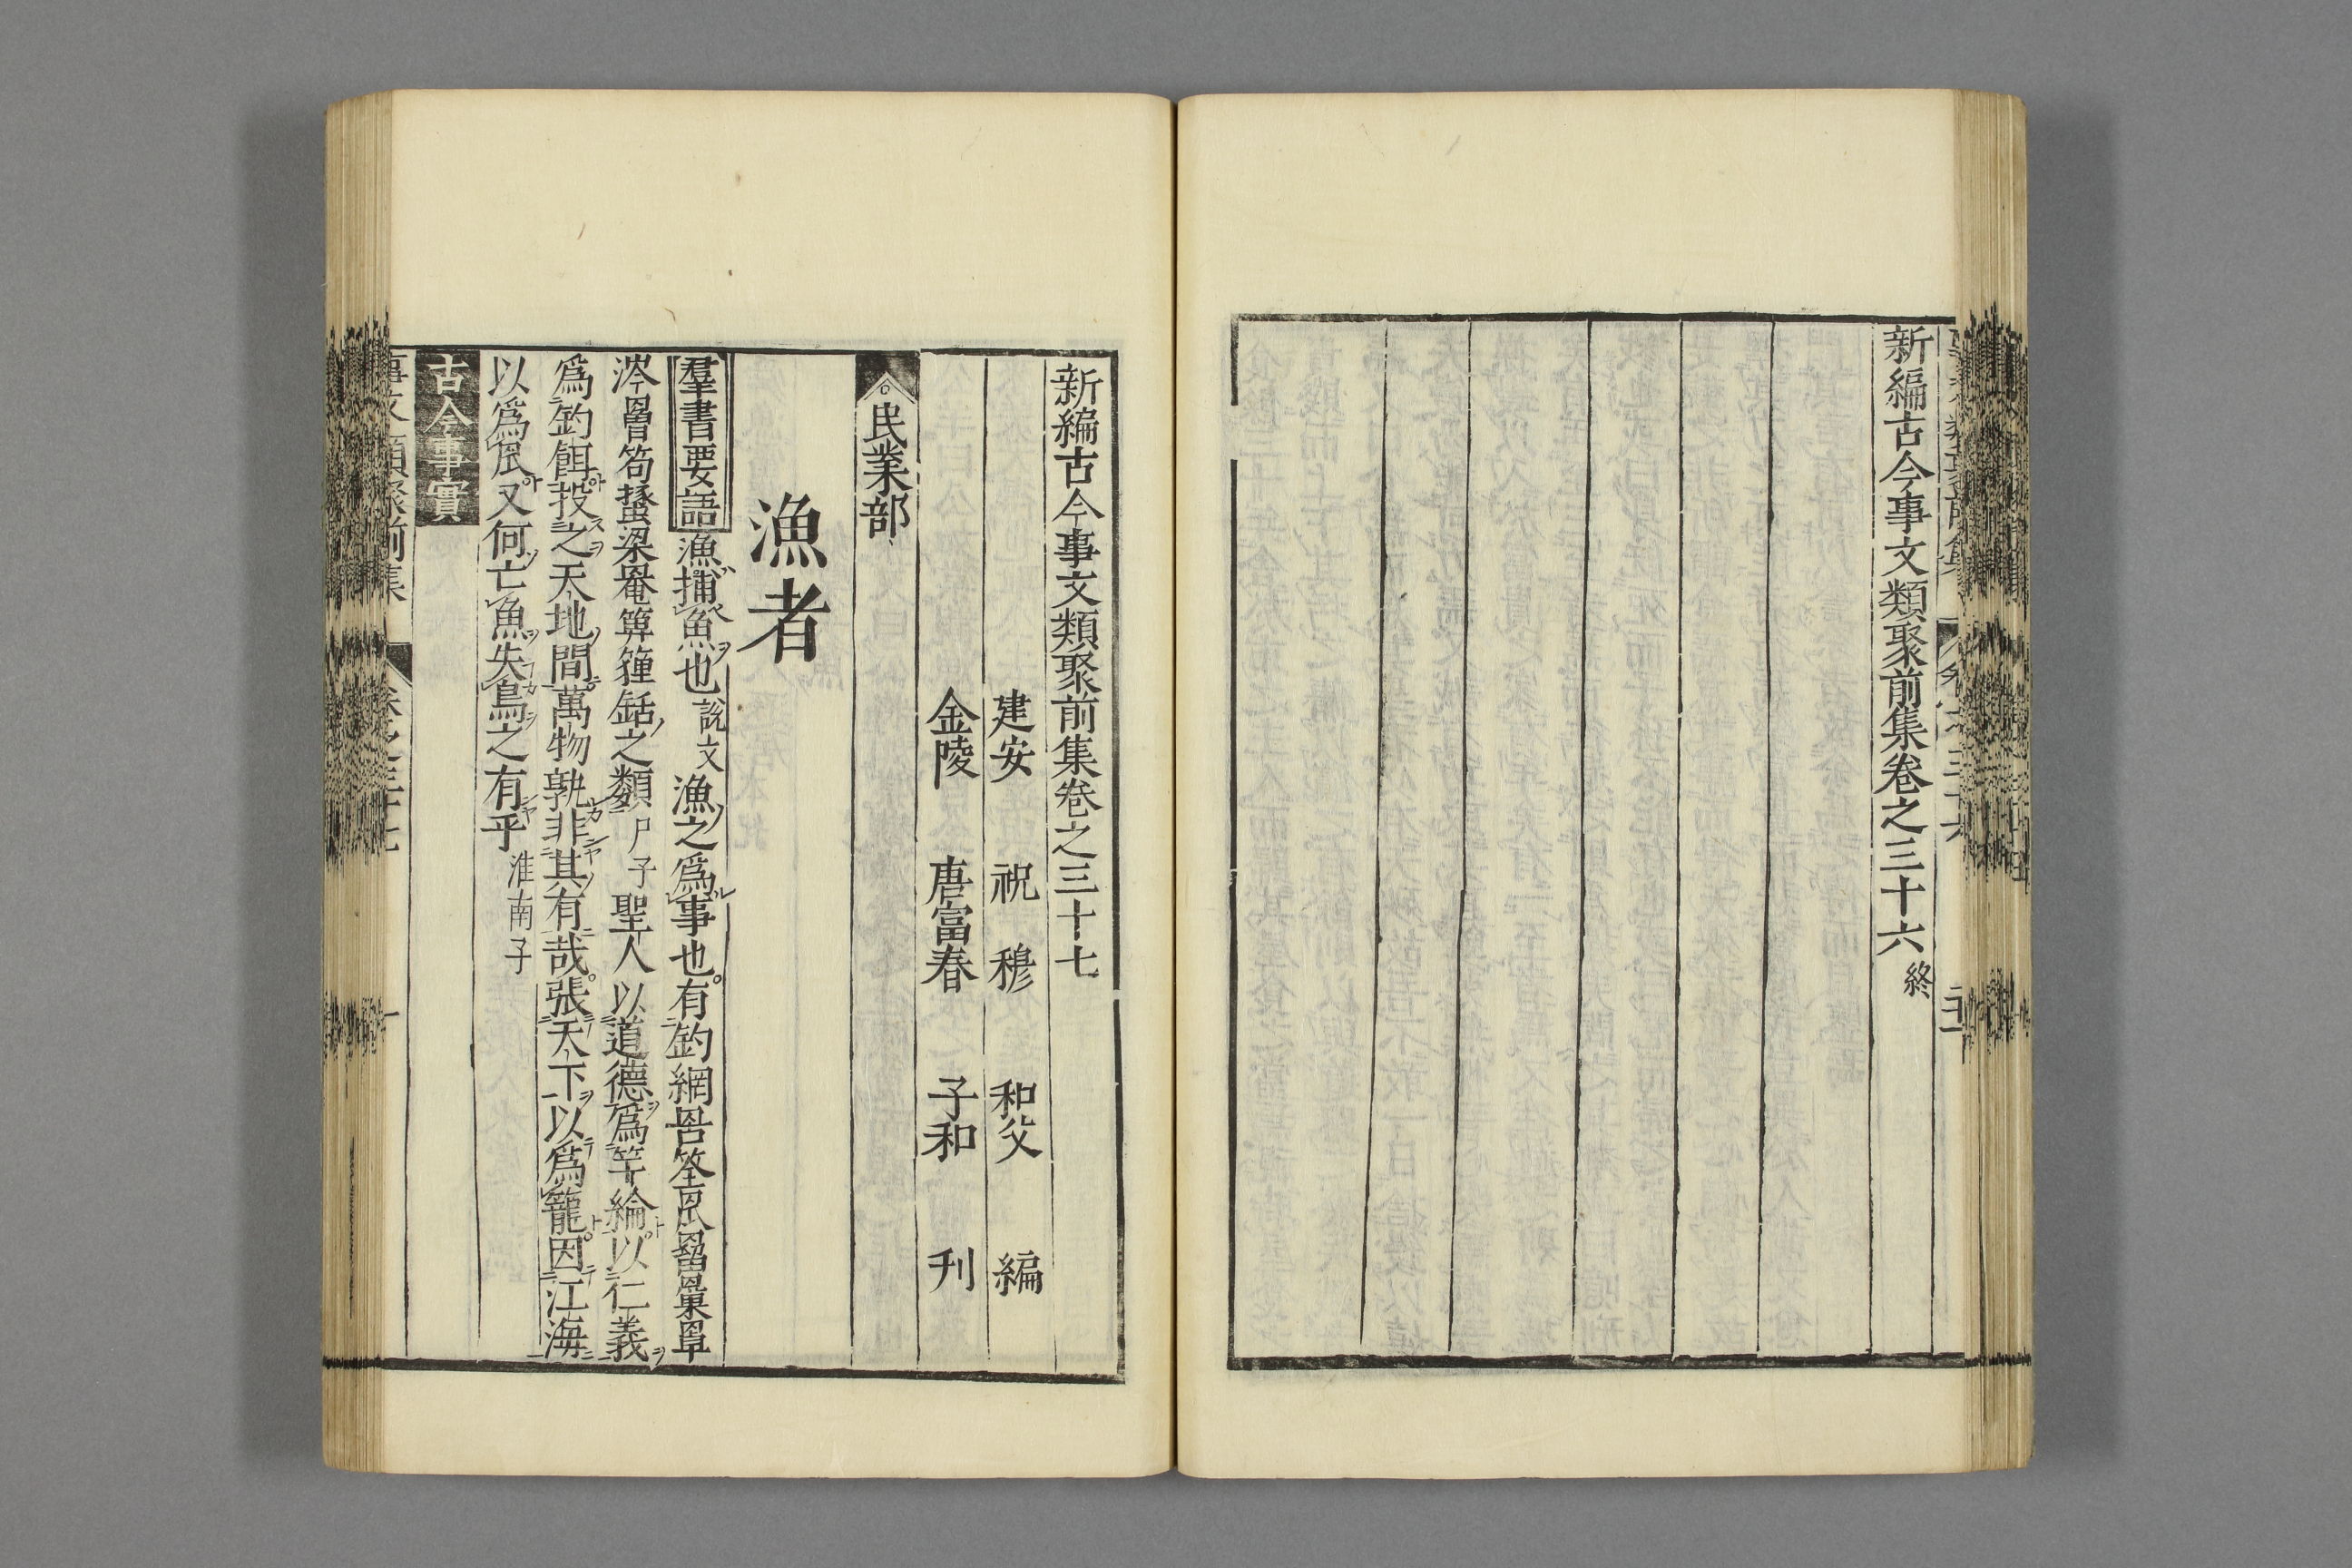 新編古今事文類聚前集卷之三十六終
新編古今事文類聚前集卷之三十七
建安 祝 穆 和父 編
金陵 唐富春 子和 刊
民業部
漁者
羣書要語 漁捕魚也說文 漁之爲事也有釣網罟筌罛罶罩
罾笱梁罨箄銛之類尸子 聖人以道德爲竿綸以仁義
爲釣餌投之天地間萬物孰非其有哉張天下以爲籠因江海
以爲罛又何亡魚失鳥之有乎淮南子
古今事實
事文類聚前集 卷之三十七 一